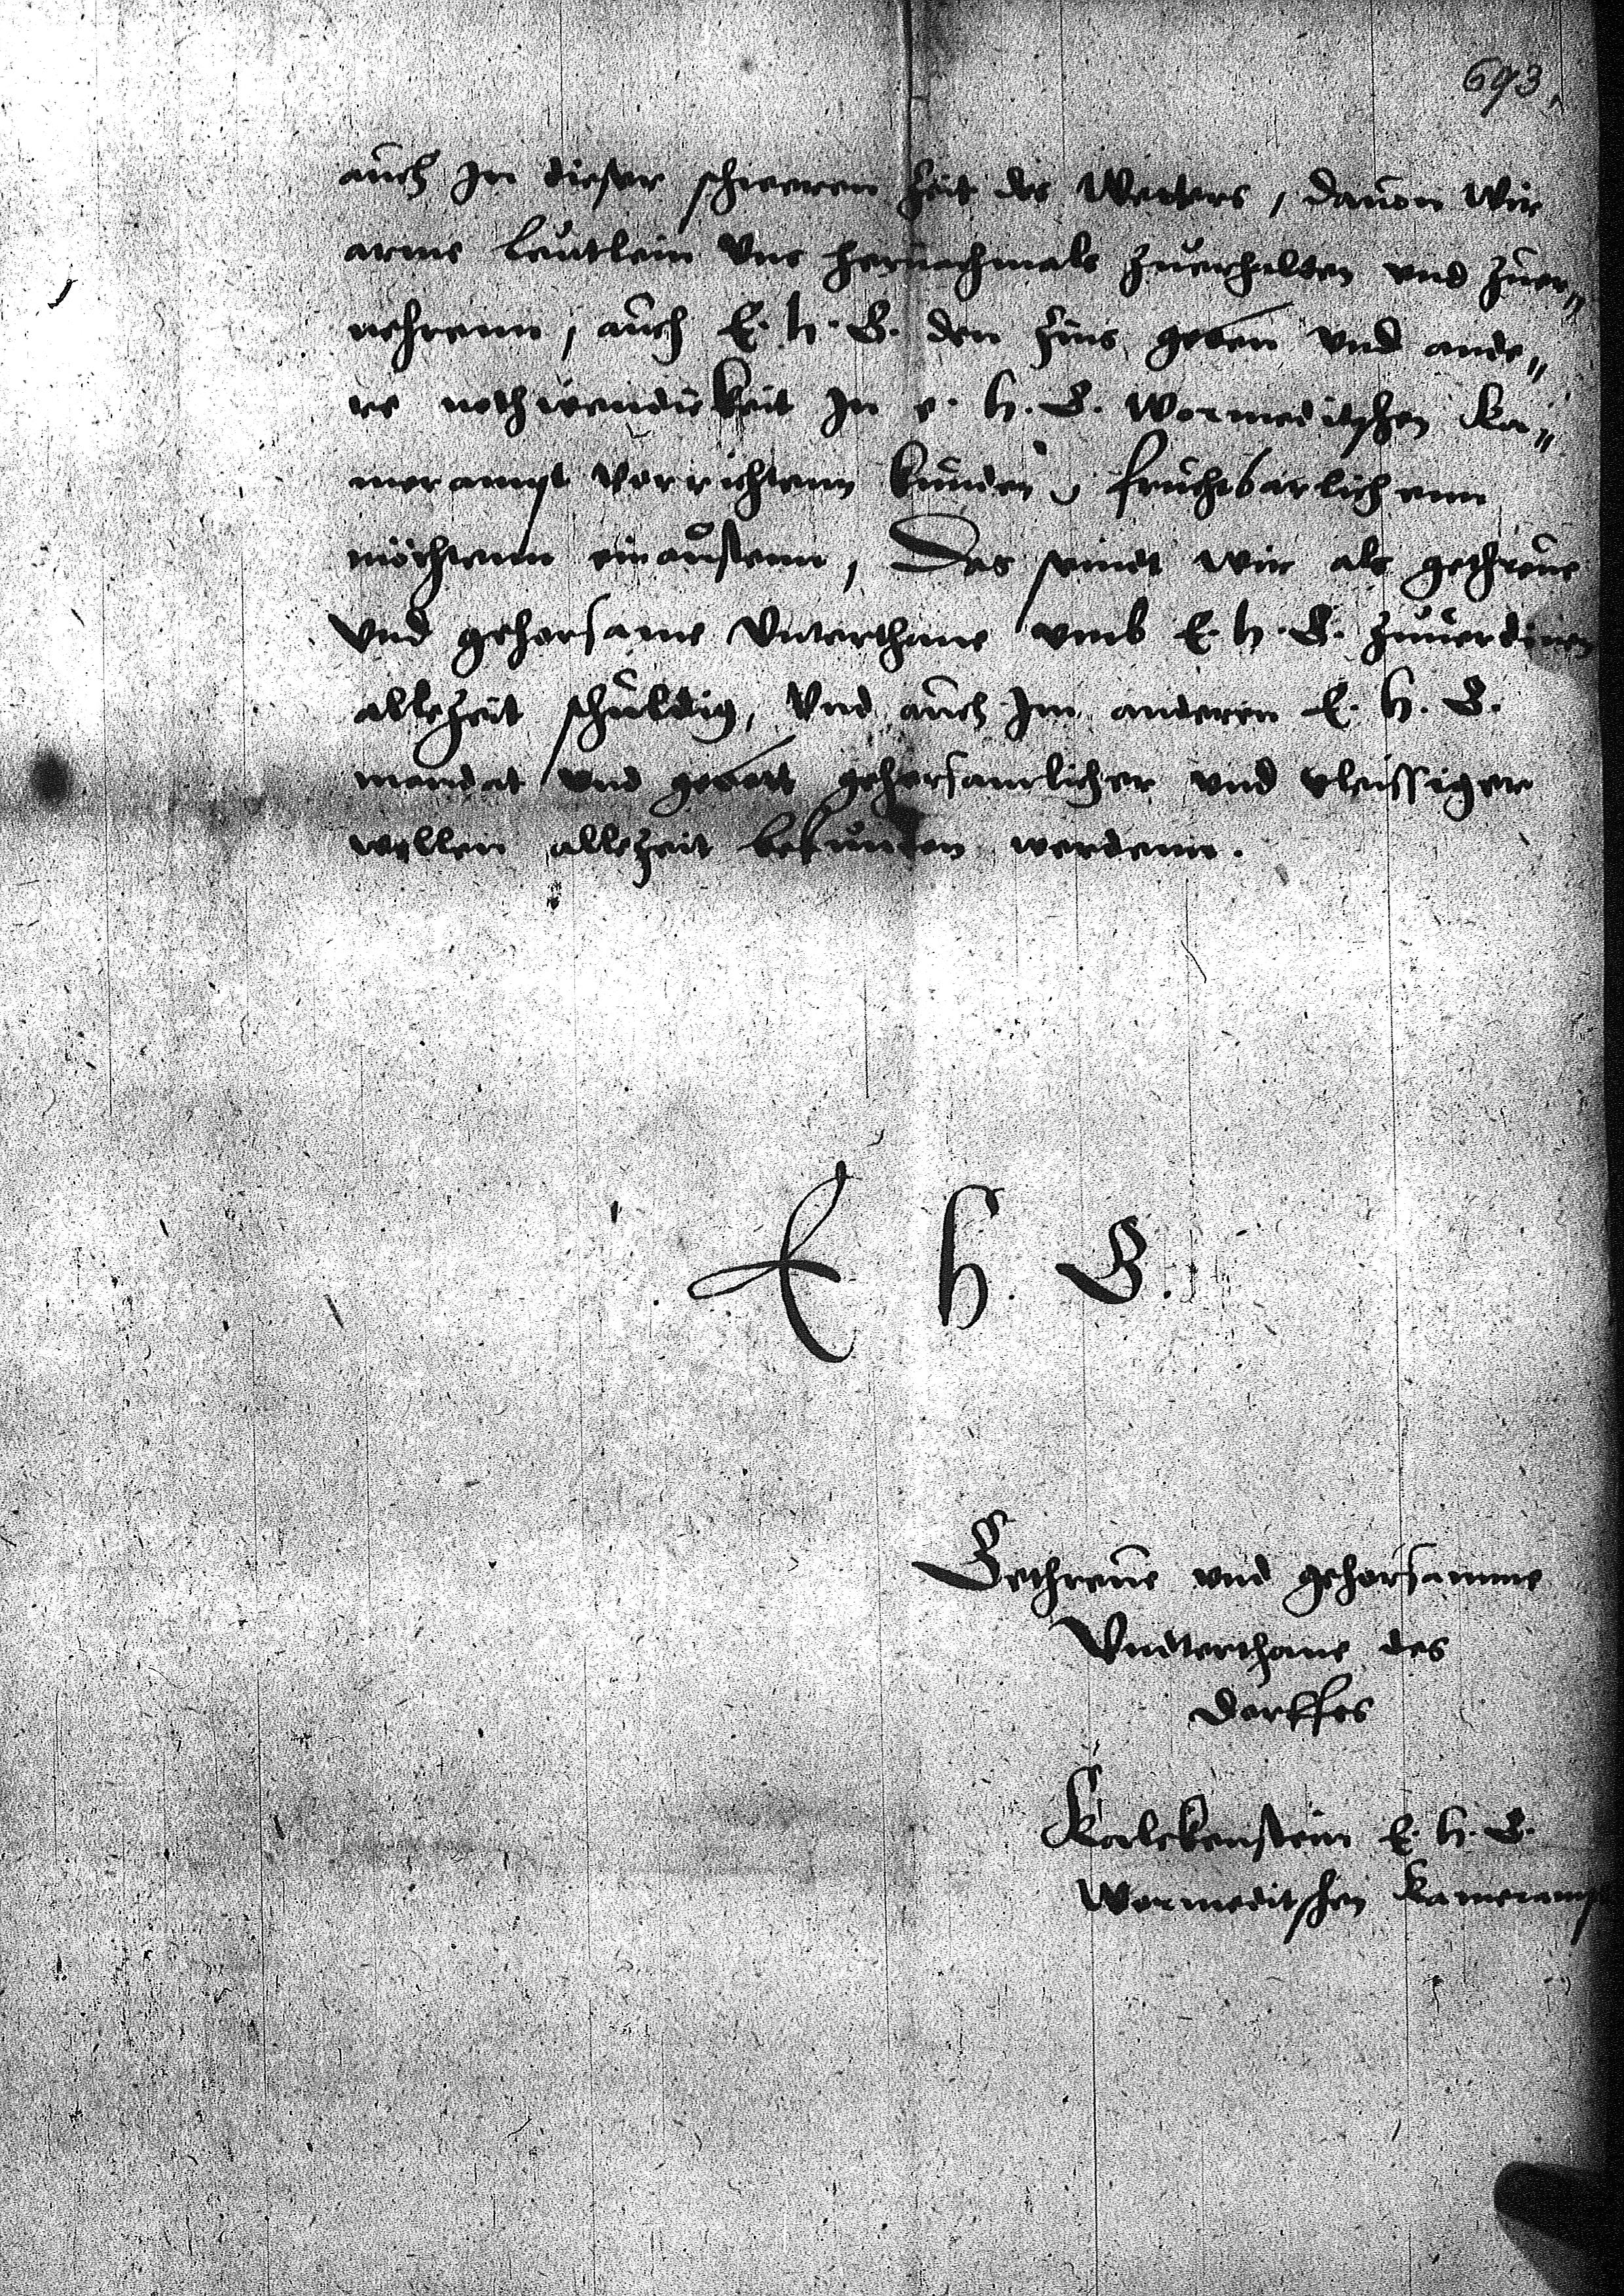 693
auch Jn dieser schweren Zeit des Weiters, dauon Wir
arme leutlein Vns hernachmals Zuerhalten vnd Zuer„
nehrenn, auch E. h. G. den Zins geben vnd ande„
re nothwendickeit Jn e. h. G. Wormeditschen Ka„
merampt Vorrichtenn kunden, fruchtbarlichenn
möchtenn einaustenn, Das seindt wir als gethreue
Vnd gehorsame Vnterthane vmb E. h. G. Zuuerdinen
alleZeit schuldig, Vnd auch Jm anderen E. h. G.
mandat vnd gebott gehorsamlicher vnd vleissiger
wollen alleZeit befunden werdenn.
E h. G.
Gethreue vnd gehorsamme
Vndterthane des
Dorffes
Kalckenstein E. h. G.
Wormeditschen Kamerampt